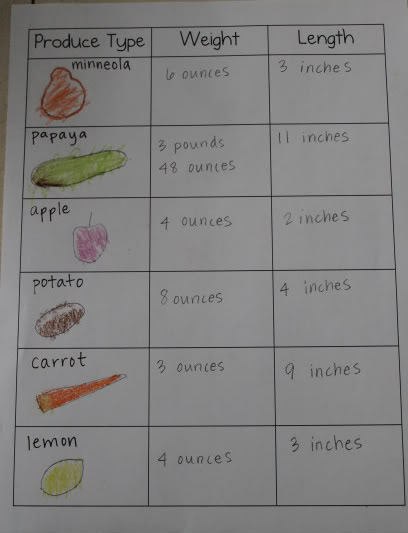 Produce Type Weight Length
minneola 6 ounces 3 inches
papaya 3 pounds 11 inches
48 ounces
apple 4 ounces 2 inches
potato 8 ounces 4 inches
carrot 3 ounces 9 inches
lemon 4 ounces 3 inches